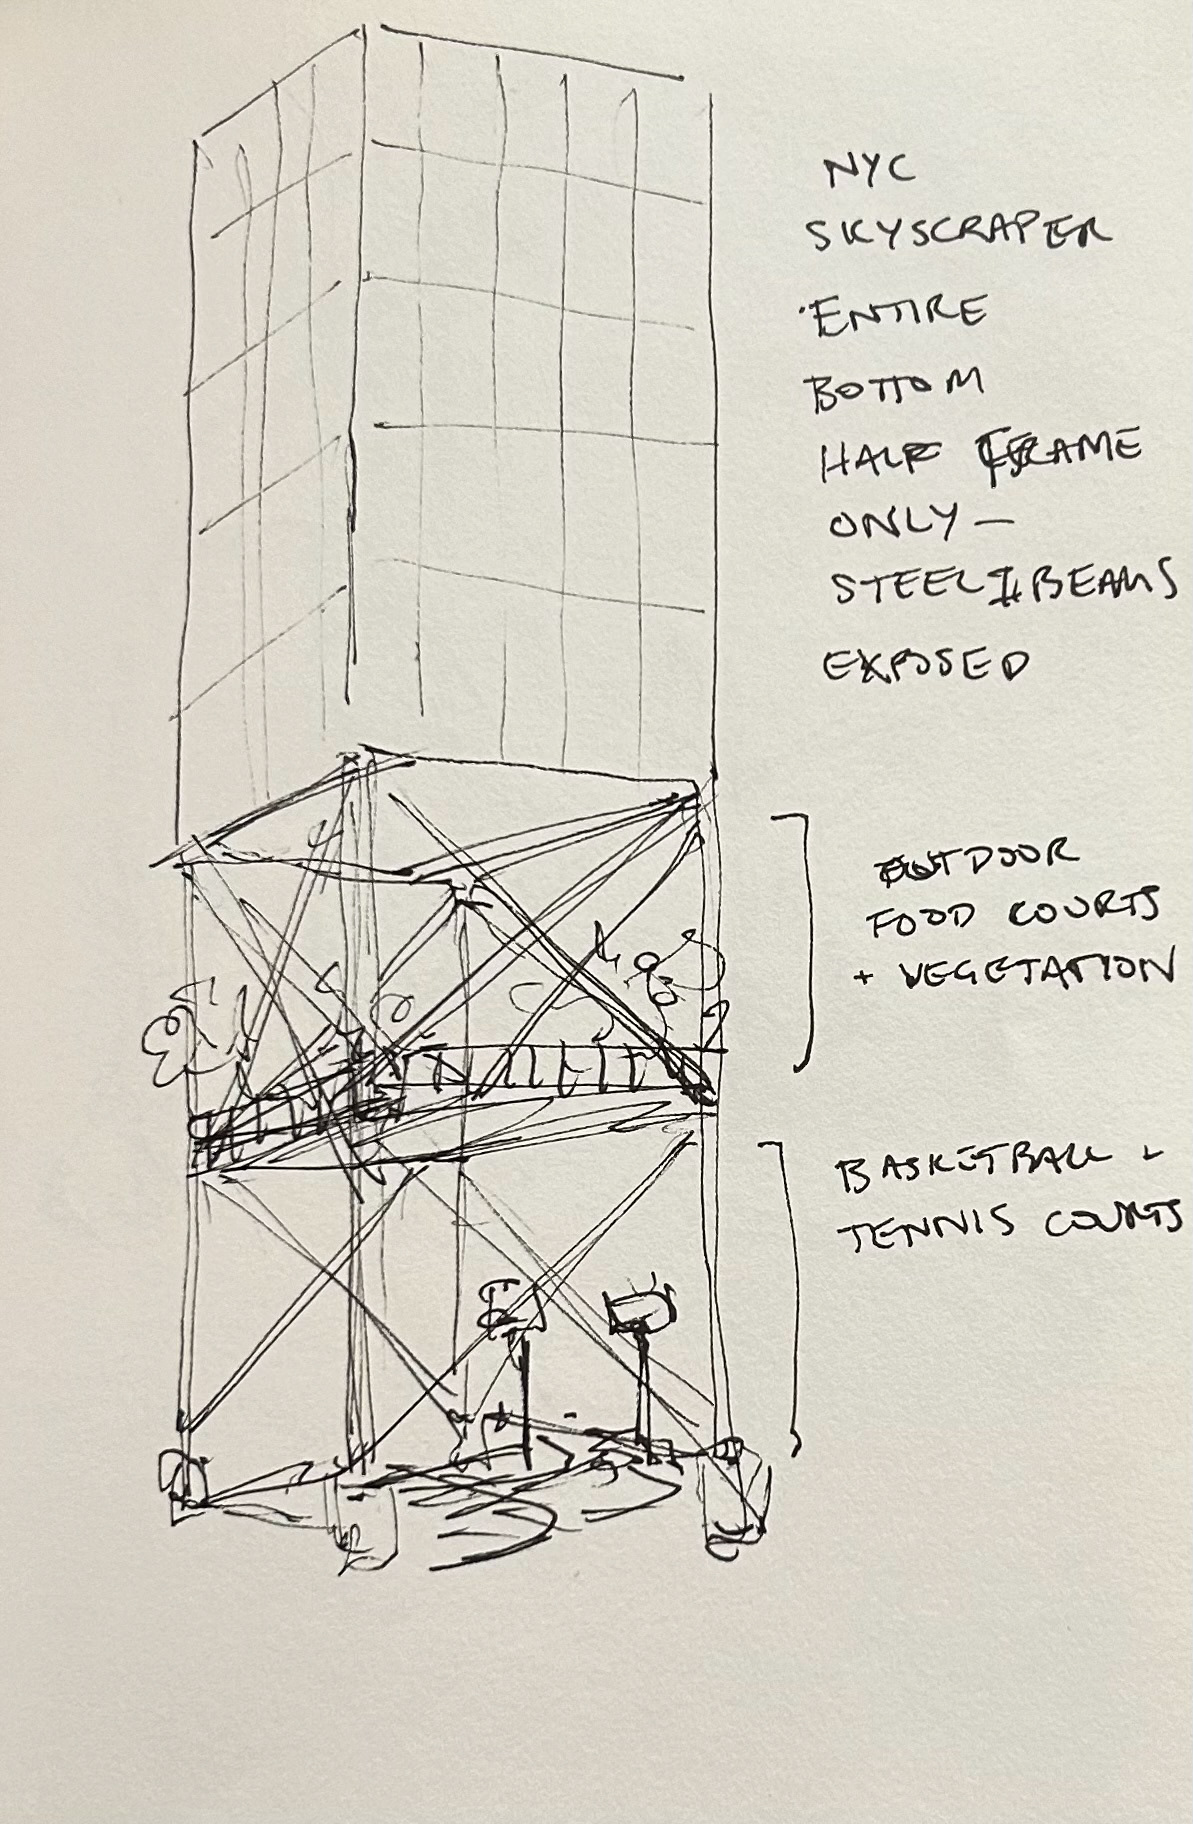 NYC
SKYSCRAPER
·ENTIRE
BOTTOM
HALF FRAME
ONLY –
STEEL I-BEAMS
EXPOSED
OUTDOOR
FOOD COURTS
+ VEGETATION
BASKETBALL +
TENNIS COURTS